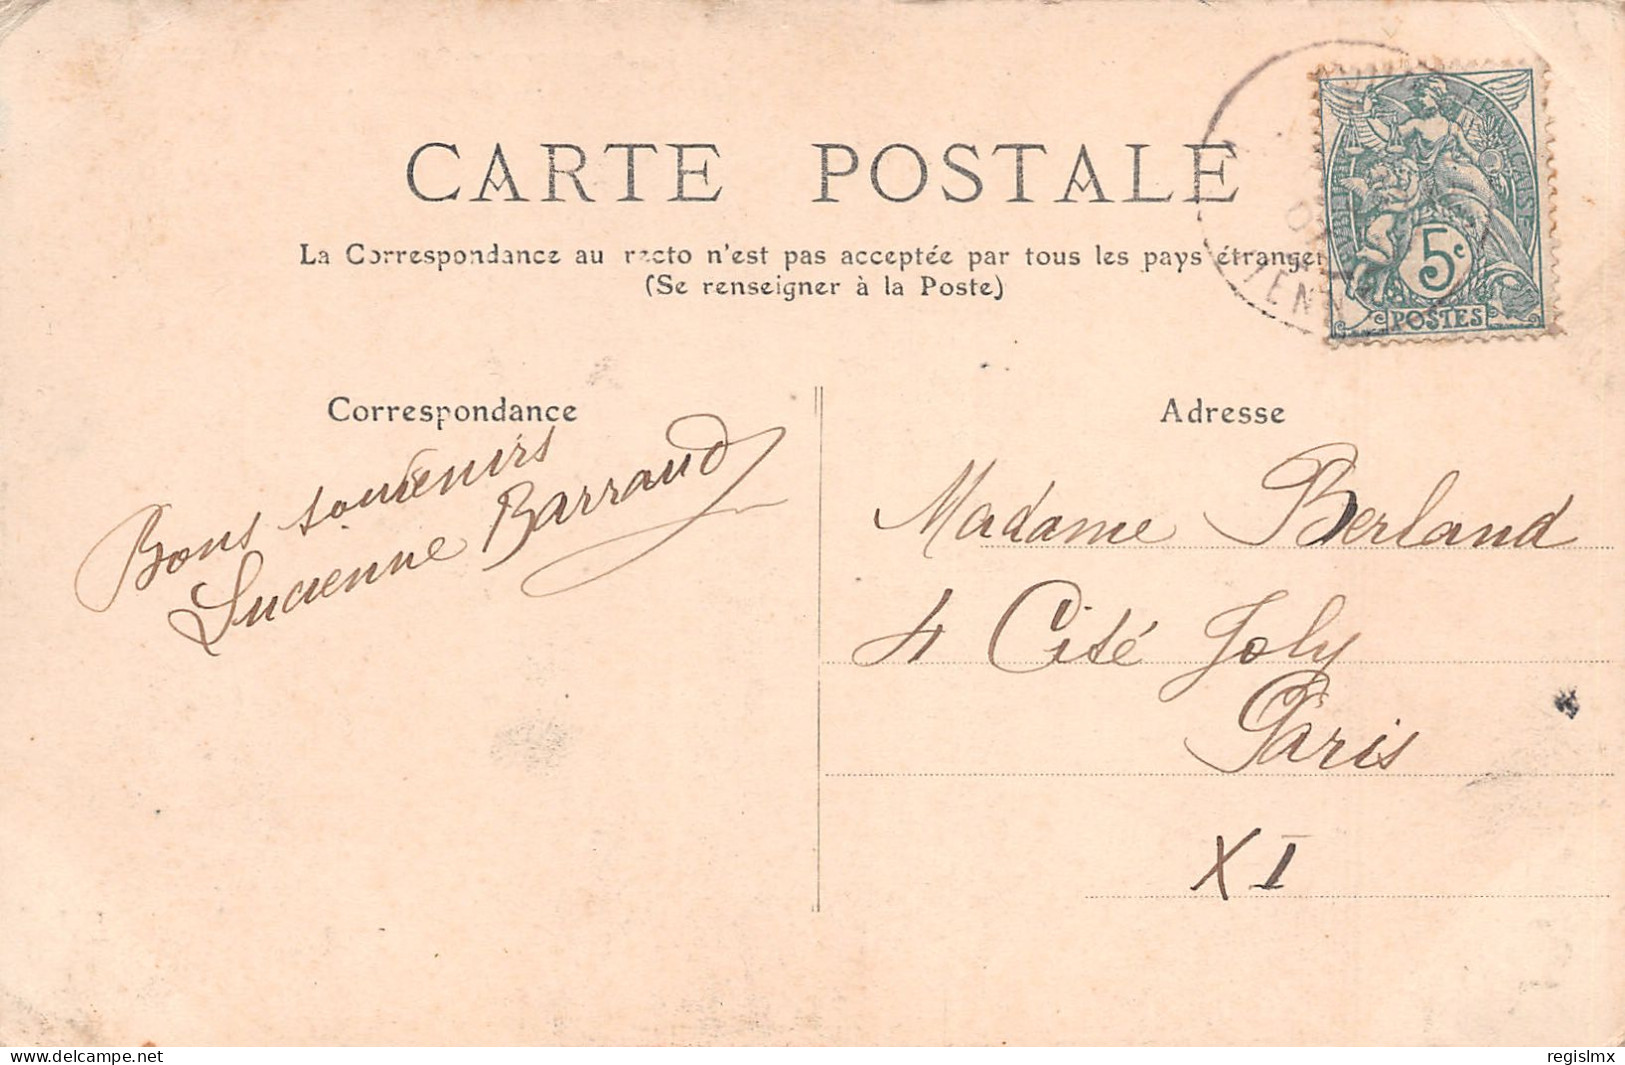 CARTE POSTALE
La Correspondance au recto n'est pas acceptée par tous les pays étranger
(Se renseigner à la Poste)
RÉPUBLIQUE FRANÇAISE
5c
POSTES
Correspondance
Bons souvenirs
Lucienne Barraud
Adresse
Madame Berland
4 Cité Joly
Paris
XI
www.delcampe.net
regislmx